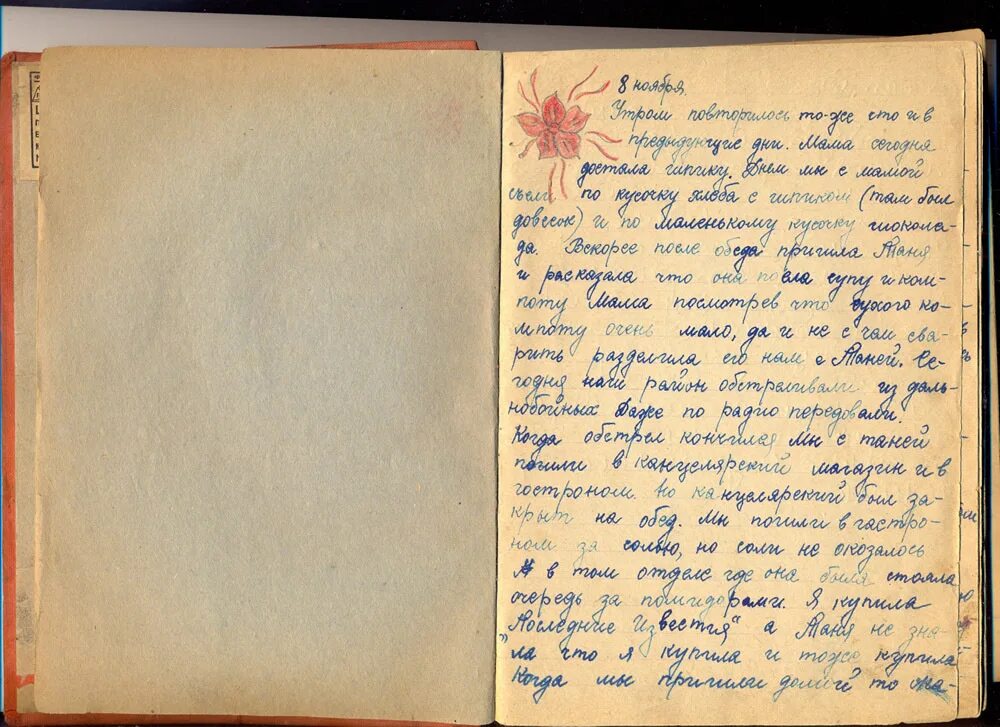 8 ноября.
Утром повторилось то-же что и в
предыдущие дни. Мама сегодня
достала шпику. Днем мы с мамой
съели по кусочку хлеба с шпиком (там был
довесок) и по маленькому кусочку шокола-
да. Вскорее после обеда пришла Таня
и расказала что она поела супу и ком-
поту Мама посмотрев что сухого ко-
мпоту очень мало, да и не с чем сва-
рить разделила его нам с Таней. Се-
годня наш район обстреливали из даль-
нобойных Даже по радио передовали.
Когда обстрел кончился Мы с таней
пошли в канцелярский магазин и в
гострономъ. но канцелярский был за-
крыт на обед. Мы пошли в гастро-
ном за солью, но соли не оказалось
в том отделе где она была стояла
очередь за помидорами. Я купила
„Последние Известия" а Таня не зна-
ла что я купила и тоже купила
Когда мы пришли домой то ма-